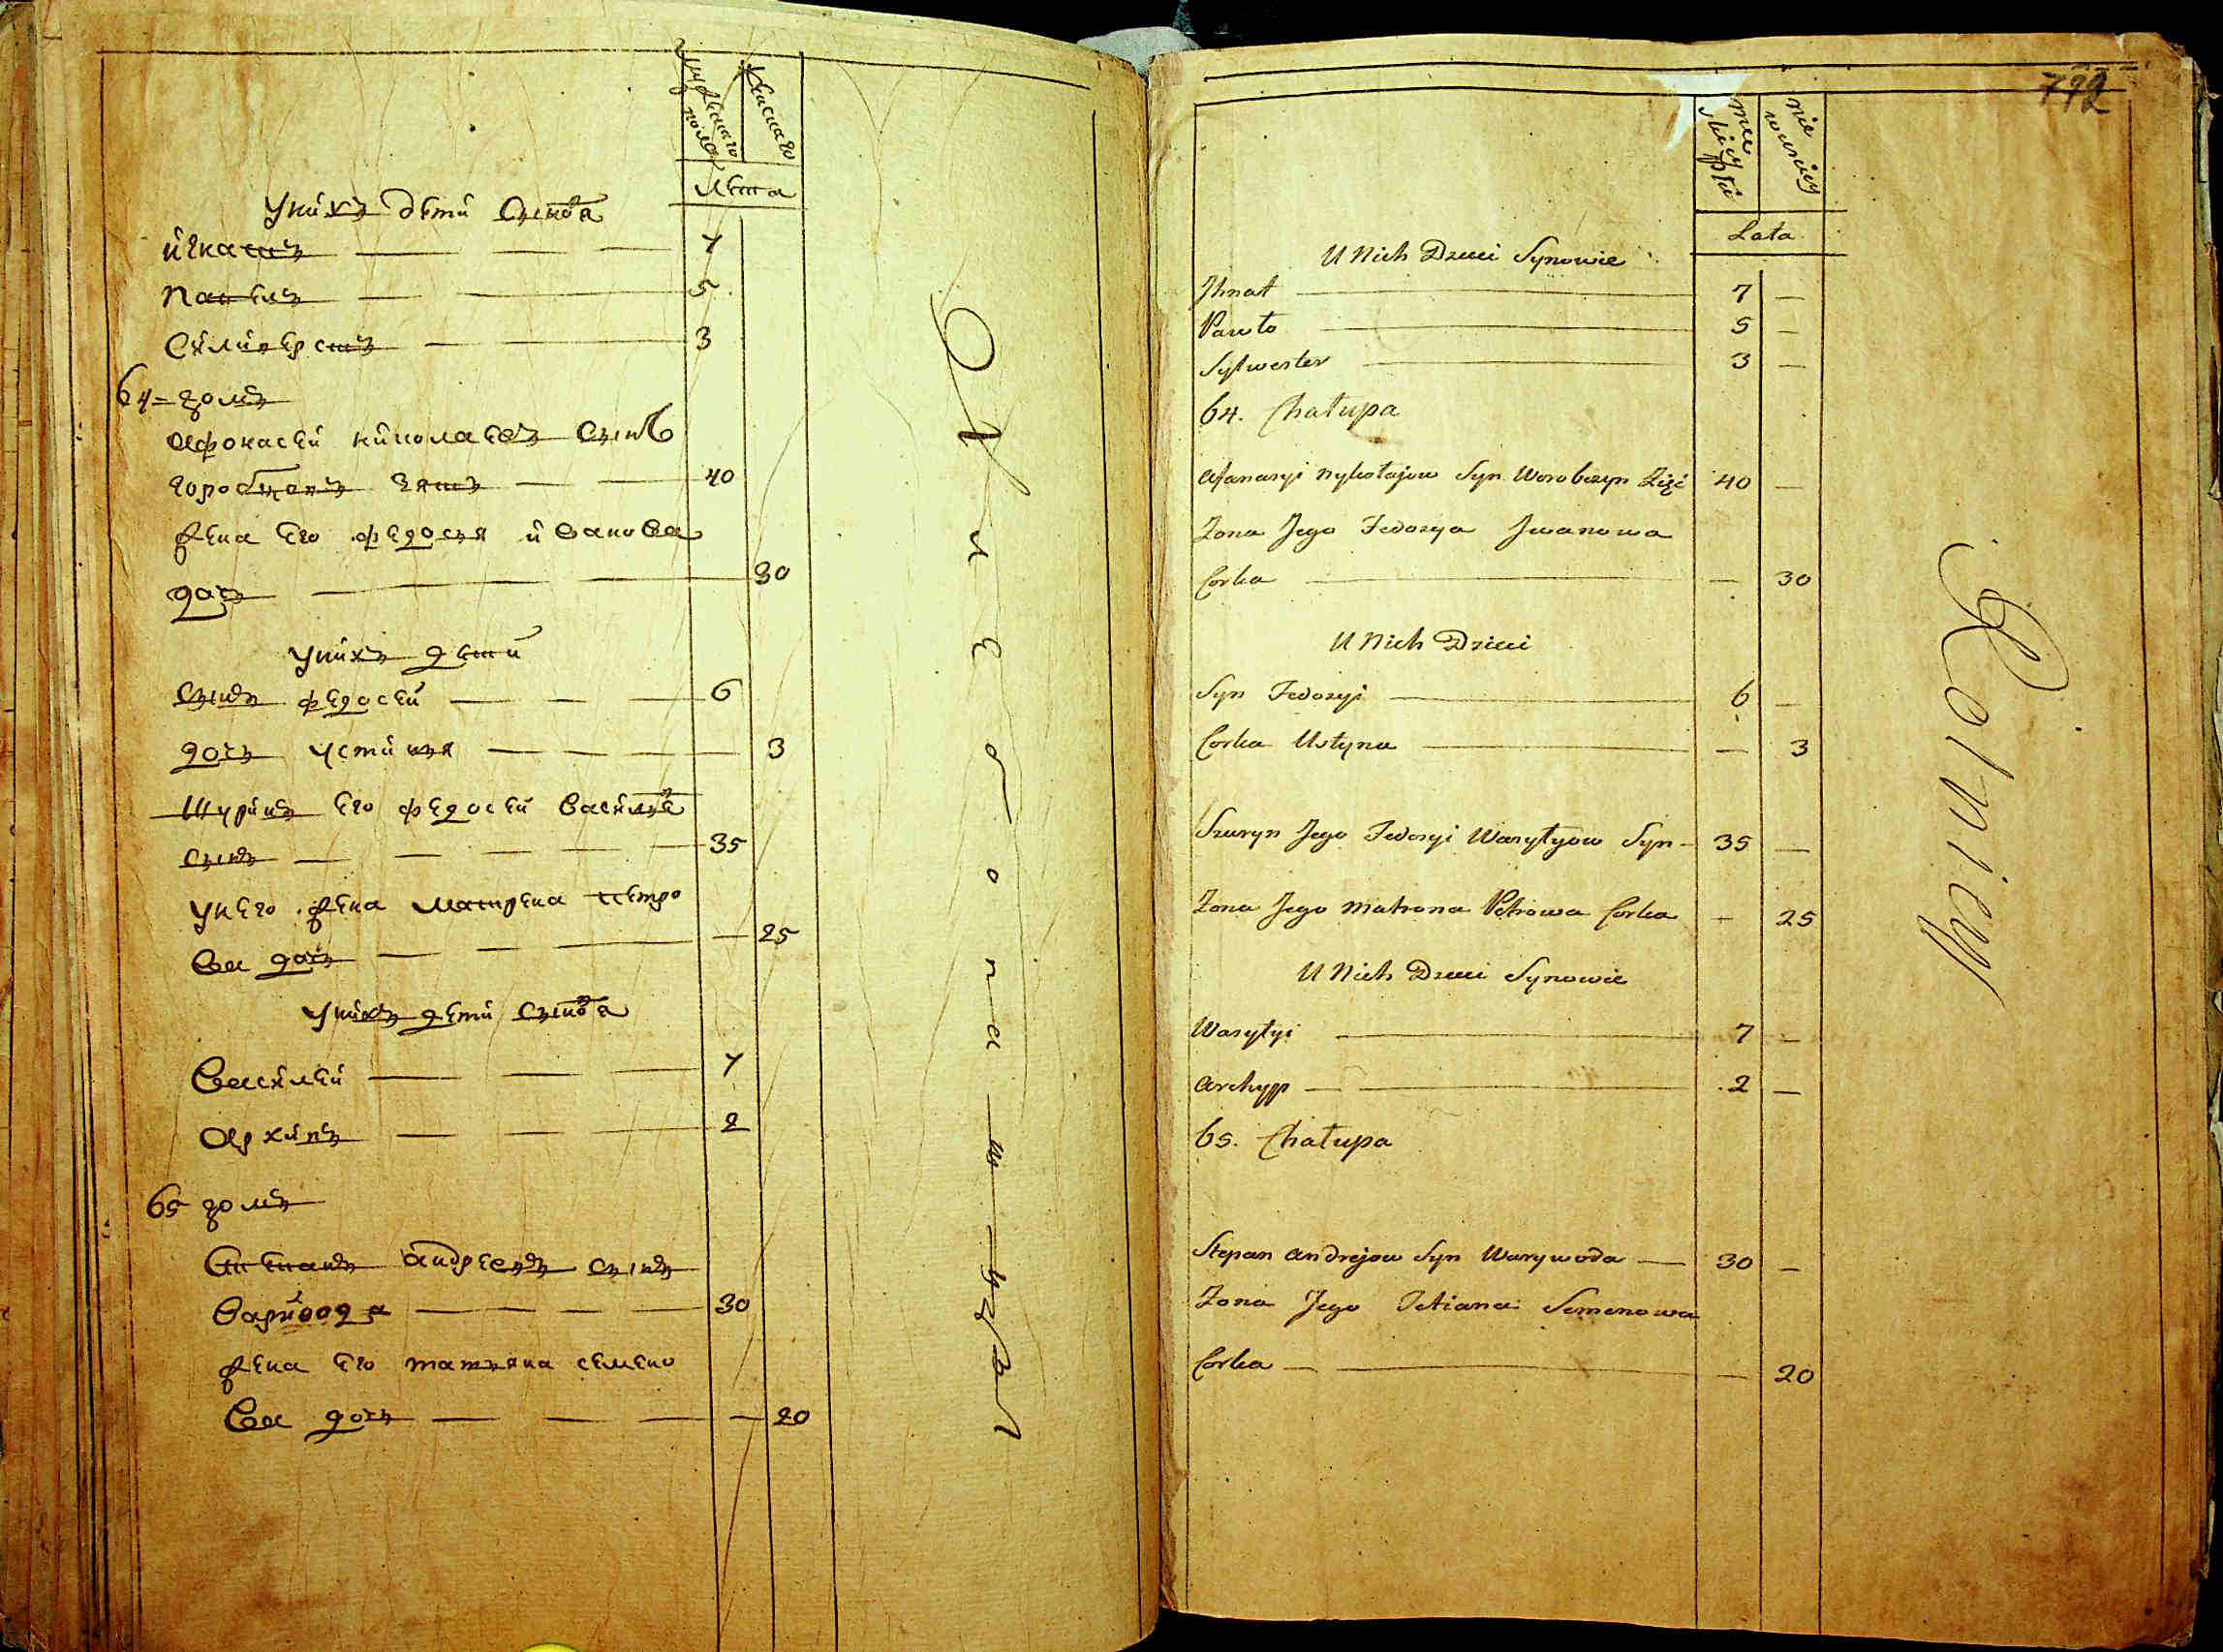 мужеска пола
женска
Лѣта
у нихъ дѣти сынова
игнатъ 7
павелъ 5
Силиверстъ 3
64 = домъ
афонасей николаевъ сынъ
воробцовъ зять 40
жена его федосья иванова
дочь 30
у нихъ дѣти
сынъ федосей 6
дочь устинья 3
Шуринъ его федосей василъевъ
сынъ 35
у него жена матрена петро
ва дочь 25
у нихъ дѣти сынова
василей 7
архипъ 2
65 домъ
Степанъ андреевъ сынъ
варивода 30
жена его татьяна семено
ва дочь 20
772
męskiey płci
niewieściey
Lata
U Nich Dzieci Synowie
Jhnat 7 —
Pawło 5 —
Sylwester 3 —
64. Chałupa
Afanasyi Nykołajow Syn Worobczyn Zięć 40 —
Zona Jego Fedosya Jwanowa
Corka — 30
U Nich Dzieci
Syn Fedosyi 6 —
Corka Ustyna — 3
Szuryn Jego Fedosyi Wasylyow Syn 35 —
Zona Jego Matrona Petrowa Corka — 25
U Nich Dzieci Synowie
Wasylyi 7 —
Archypp 2 —
65. Chałupa
Stepan Andrejow Syn Warywoda 30 —
Zona Jego Tetiana Semenowa
Corka — 20
Rolniey